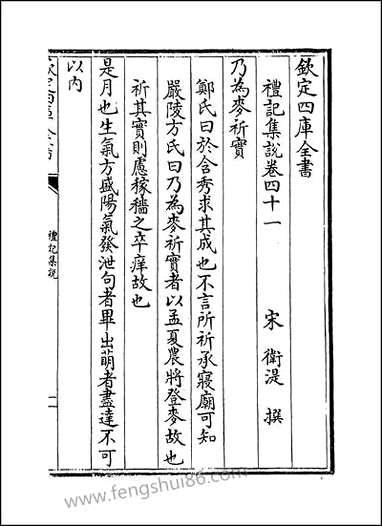 欽定四庫全書
禮記集說卷四十一
宋 衛湜 撰
乃為麥祈實
鄭氏曰於含秀求其成也不言所祈承寢廟可知
嚴陵方氏曰乃為麥祈實者以孟夏農將登麥故也
祈其實則慮稼穡之卒痒故也
是月也生氣方盛陽氣發泄句者畢出萌者盡達不可
以內
欽定四庫全書
禮記集說
一
www.fengshui86.com